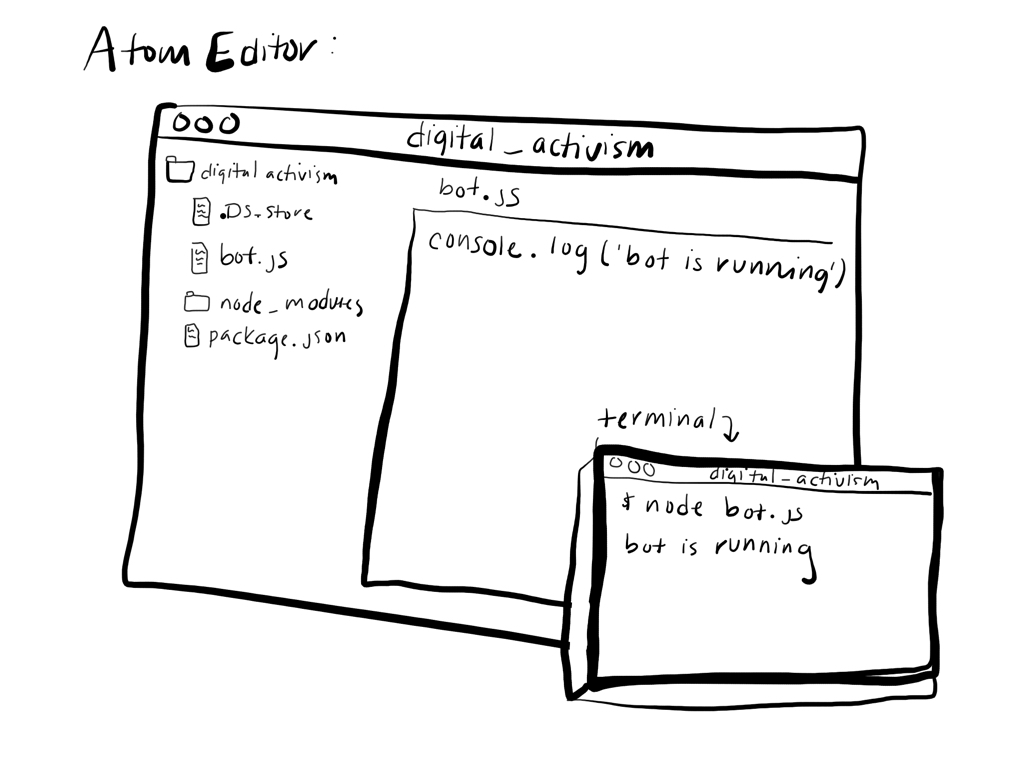 Atom Editor:
digital_activism
digital activism
.DS_store
bot.js
node_modules
package.json
bot.js
console.log('bot is running')
terminal
digital_activism
$ node bot.js
bot is running